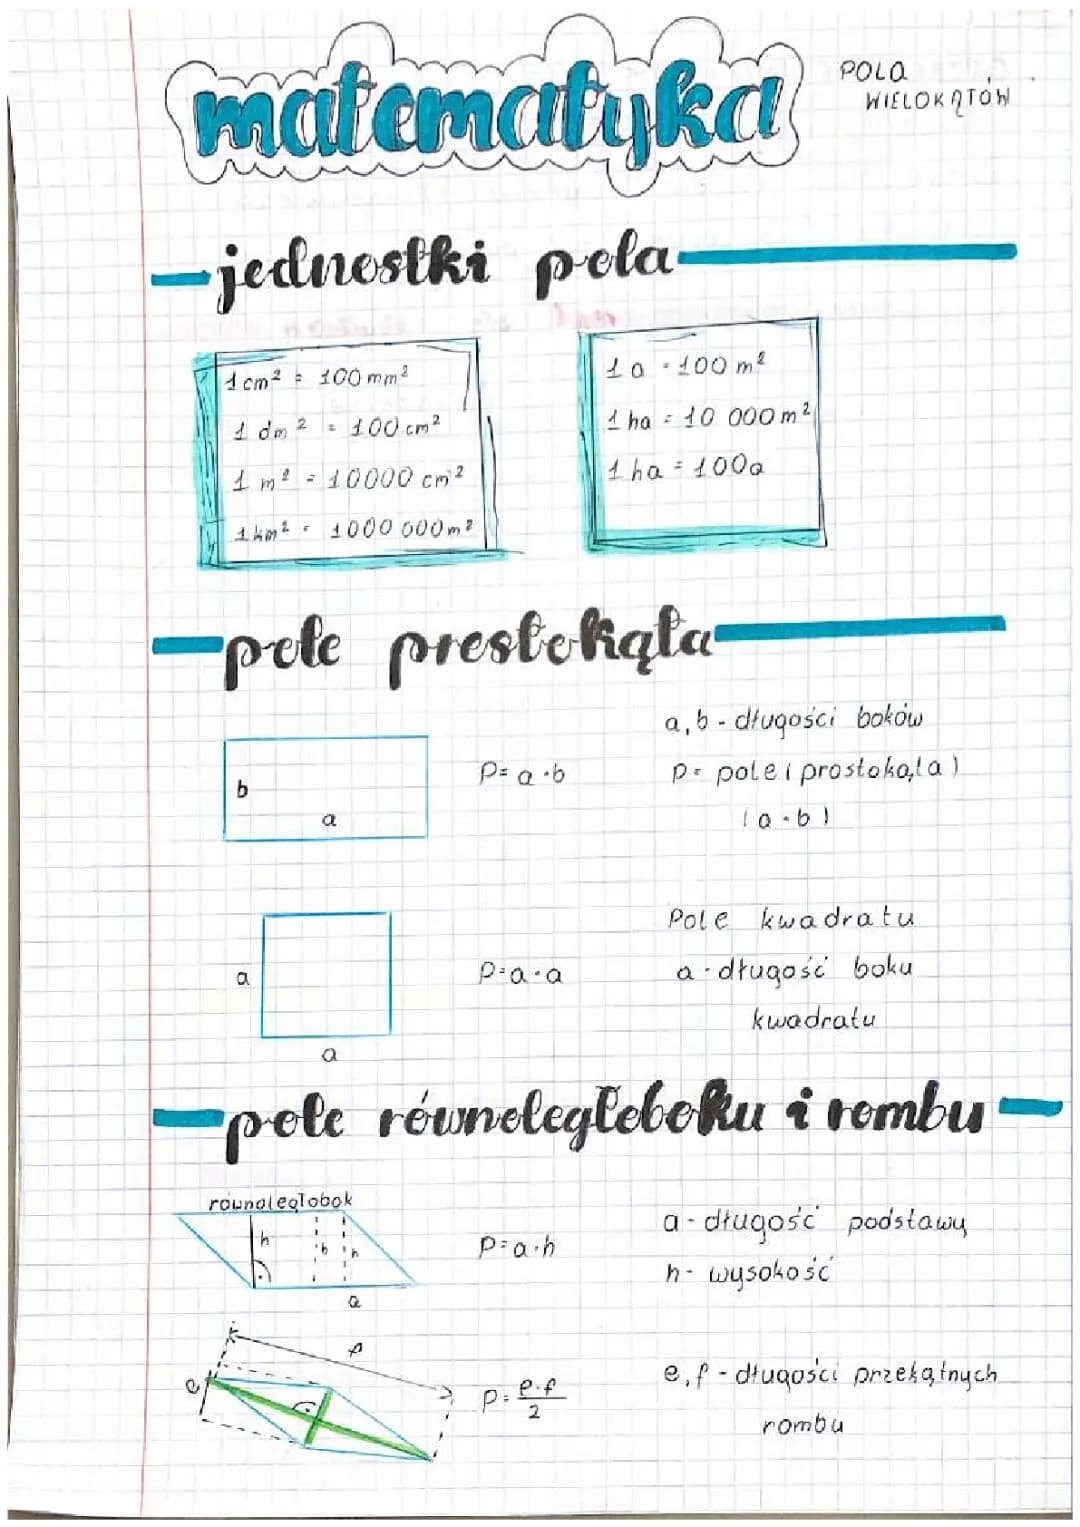 matematyka
POLA
WIELOKĄTÓW
jednostki pola
1 cm² = 100 mm²
1 dm² = 100 cm²
1 m² = 10000 cm²
1 km² = 1000 000 m²
1 a = 100 m²
1 ha = 10 000 m²
1 ha = 100a
pole prostokąta
b
a
P = a · b
a, b - długości boków
P = pole (prostokąta)
(a · b)
a
a
P = a · a
Pole kwadratu
a - długość boku
kwadratu
pole równoległoboku i rombu
równoległobok
h
h
h
a
P = a · h
a - długość podstawy
h - wysokość
f
e
P = e·f/2
e, f - długości przekątnych
rombu